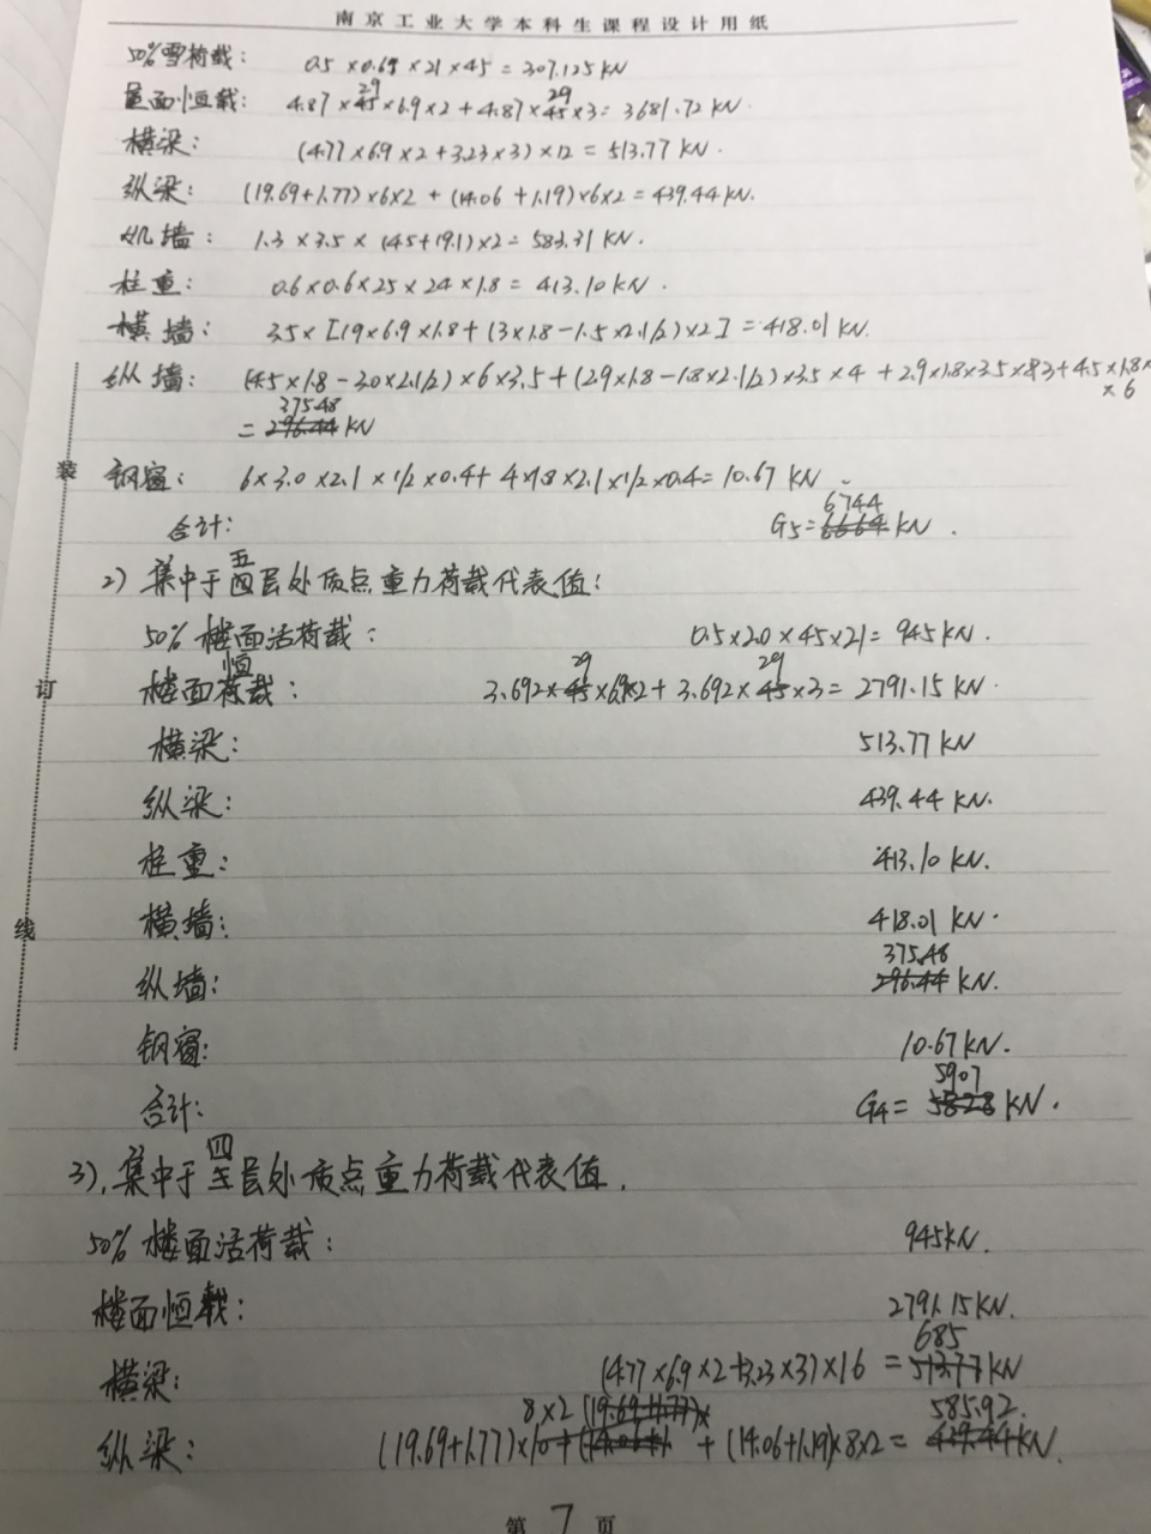 南京工业大学本科生课程设计用纸
50%雪荷载: 0.5×0.65×21×45=307.125kN
29 29
屋面恒载: 4.87×45×6.9×2+4.87×45×3=3681.72kN.
横梁: (4.77×6.9×2+3.23×3)×12=513.77kN.
纵梁: (19.69+1.77)×6×2+(14.06+1.19)×6×2=439.44kN.
墙: 1.3×3.5×(45+19.1)×2=583.31kN.
柱重: 0.6×0.6×25×24×1.8=413.10kN.
横墙: 3.5×[19×6.9×1.8+(3×1.8-1.5×2.1/2)×2]=418.01kN.
纵墙: (4.5×1.8-3.0×2.1/2)×6×3.5+(2.9×1.8-1.8×2.1/2)×3.5×4+2.9×1.8×3.5×83+4.5×1.8×
×6
375.48
=296.44kN
装
钢窗: 6×3.0×2.1×1/2×0.4+4×1.8×2.1×1/2×0.4=10.67kN
6744
合计: G5=6664kN.
五
2) 集中于四层处质点重力荷载代表值:
50%楼面活荷载: 0.5×2.0×45×21=945kN.
恒 29 29
订
楼面荷载: 3.692×45×6.9×2+3.692×45×3=2791.15kN.
横梁: 513.77kN
纵梁: 439.44kN.
柱重: 413.10kN.
线
横墙: 418.01kN.
375.48
纵墙: 296.44kN.
钢窗: 10.67kN.
5907
合计: G4=5828kN.
四
3).集中于三层处质点重力荷载代表值.
50%楼面活荷载: 945kN.
楼面恒载: 2791.15kN.
685
横梁: (4.77×6.9×2+3.23×3)×16=513.77kN
8×2 (19.69+1.77)× 585.92.
纵梁: (19.69+1.77)×10+(14.06+1. +(14.06+1.19)×8×2=439.44kN.
第 7 页